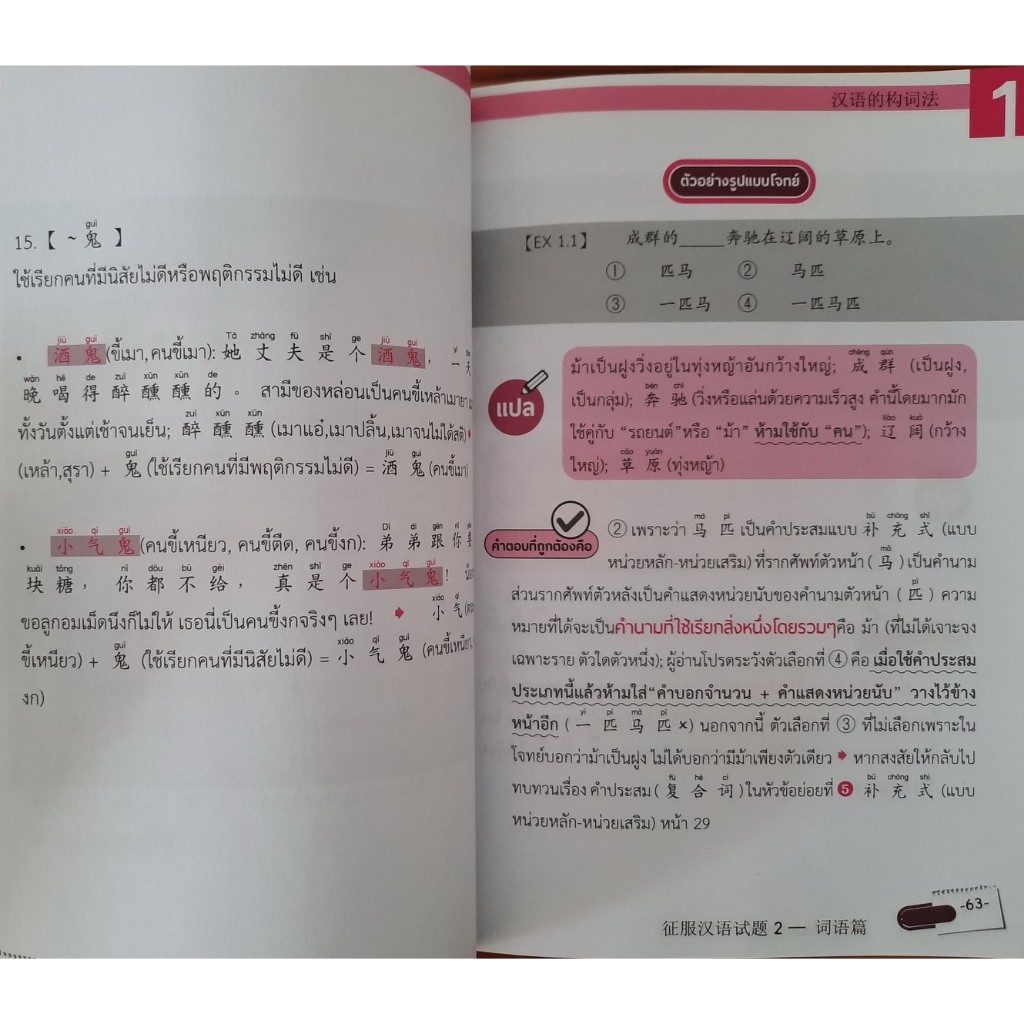 guǐ
15.【 ~ 鬼 】
ใช้เรียกคนที่มีนิสัยไม่ดีหรือพฤติกรรมไม่ดี เช่น
jiǔ guǐ Tā zhàng fū shì ge jiǔ guǐ
• 酒 鬼 (ขี้เมา,คนขี้เมา): 她 丈 夫 是 个 酒 鬼 , 一 天
wǎn hē de zuì xūn xūn de
晚 喝 得 醉 醺 醺 的 。 สามีของหล่อนเป็นคนขี้เหล้าเมายา
zuì xūn xūn
ทั้งวันตั้งแต่เช้าจนเย็น; 醉 醺 醺 (เมาแอ๋,เมาปลิ้น,เมาจนไม่ได้สติ)
guǐ jiǔ guǐ
(เหล้า,สุรา) + 鬼 (ใช้เรียกคนที่มีพฤติกรรมไม่ดี) = 酒 鬼 (คนขี้เมา)
xiǎo qì guǐ Dì di gēn nǐ
• 小 气 鬼 (คนขี้เหนียว, คนขี้ตืด, คนขี้งก): 弟 弟 跟 你
kuài táng nǐ dōu bù gěi zhēn shì ge xiǎo qì guǐ
块 糖 , 你 都 不 给 , 真 是 个 小 气 鬼 !
xiǎo qì
ขอลูกอมเม็ดนึงก็ไม่ให้ เธอนี่เป็นคนขี้งกจริงๆ เลย! 小 气
guǐ xiǎo qì guǐ
ขี้เหนียว) + 鬼 (ใช้เรียกคนที่มีนิสัยไม่ดี) = 小 气 鬼 (คนขี้เหนียว,
งก)
汉语的构词法 1
ตัวอย่างรูปแบบโจทย์
【EX 1.1】 成群的_____奔驰在辽阔的草原上。
① 匹马 ② 马匹
③ 一匹马 ④ 一匹马匹
แปล
chéng qún
ม้าเป็นฝูงวิ่งอยู่ในทุ่งหญ้าอันกว้างใหญ่; 成 群 (เป็นฝูง,
bēn chí
เป็นกลุ่ม); 奔 驰 (วิ่งหรือแล่นด้วยความเร็วสูง คำนี้โดยมากมัก
liáo kuò
ใช้คู่กับ “รถยนต์”หรือ “ม้า” ห้ามใช้กับ “คน”); 辽 阔 (กว้าง
cǎo yuán
ใหญ่); 草 原 (ทุ่งหญ้า)
คำตอบที่ถูกต้องคือ
mǎ pǐ bǔ chōng shì
② เพราะว่า 马 匹 เป็นคำประสมแบบ 补 充 式 (แบบ
mǎ
หน่วยหลัก-หน่วยเสริม) ที่รากศัพท์ตัวหน้า ( 马 ) เป็นคำนาม
pǐ
ส่วนรากศัพท์ตัวหลังเป็นคำแสดงหน่วยนับของคำนามตัวหน้า ( 匹 ) ความ
หมายที่ได้จะเป็นคำนามที่ใช้เรียกสิ่งหนึ่งโดยรวมๆคือ ม้า (ที่ไม่ได้เจาะจง
เฉพาะราย ตัวใดตัวหนึ่ง); ผู้อ่านโปรดระวังตัวเลือกที่ ④ คือ เมื่อใช้คำประสม
ประเภทนี้แล้วห้ามใส่“คำบอกจำนวน + คำแสดงหน่วยนับ” วางไว้ข้าง
yì pǐ mǎ pǐ
หน้าอีก ( 一 匹 马 匹 ×) นอกจากนี้ ตัวเลือกที่ ③ ที่ไม่เลือกเพราะใน
โจทย์บอกว่าม้าเป็นฝูง ไม่ได้บอกว่ามีม้าเพียงตัวเดียว หากสงสัยให้กลับไป
fù hé cí bǔ chōng shì
ทบทวนเรื่อง คำประสม ( 复 合 词 ) ในหัวข้อย่อยที่ ❺ 补 充 式 (แบบ
หน่วยหลัก-หน่วยเสริม) หน้า 29
征服汉语试题 2 — 词语篇
-63-